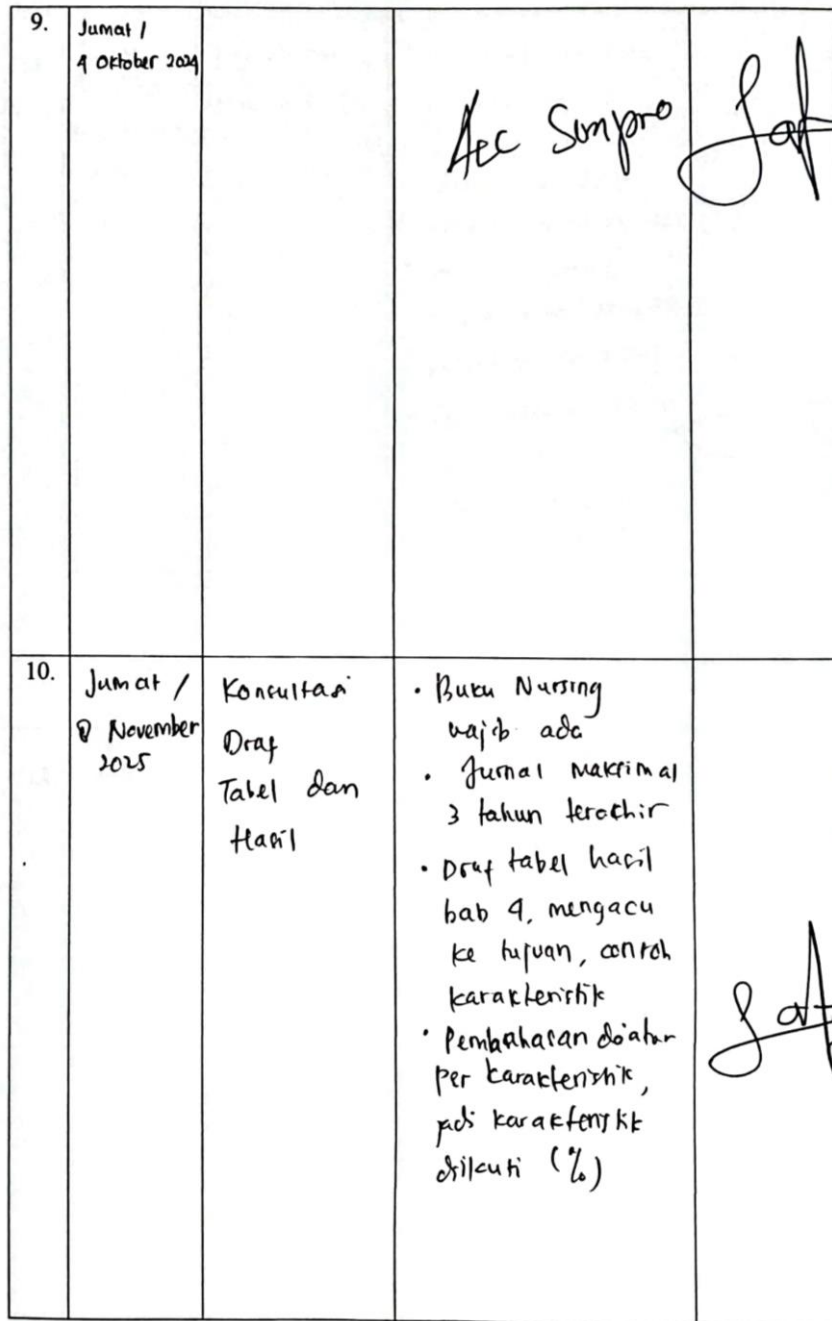 9.
Jumat /
4 Oktober 2024
Acc Sempro
10.
Jumat /
8 November
2025
Konsultasi
Draf
Tabel dan
Hasil
• Buku Nursing
wajib ada
• Jurnal maksimal
3 tahun terakhir
• Draf tabel hasil
bab 4, mengacu
ke tujuan, contoh
karakteristik
• Pembahasan diatur
per karakteristik,
jadi karakteristik
diikuti (%)